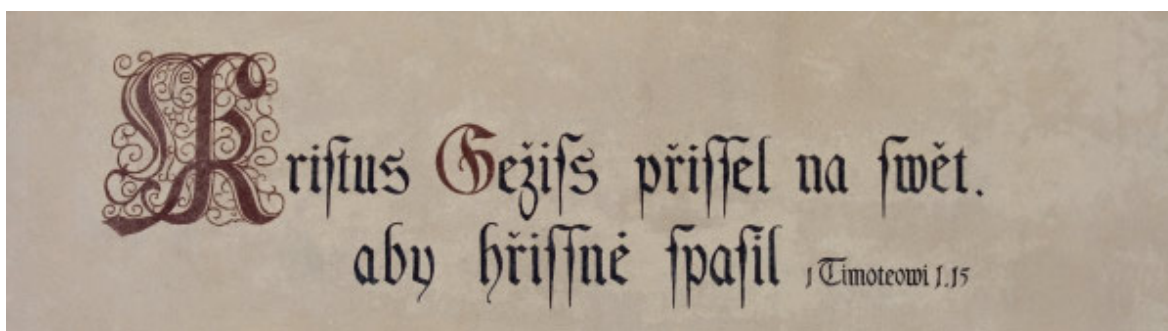 Kriſtus Gežiſs přiſſel na ſwět.
aby hřiſſné ſpaſil 1 Timoteowi 1.15